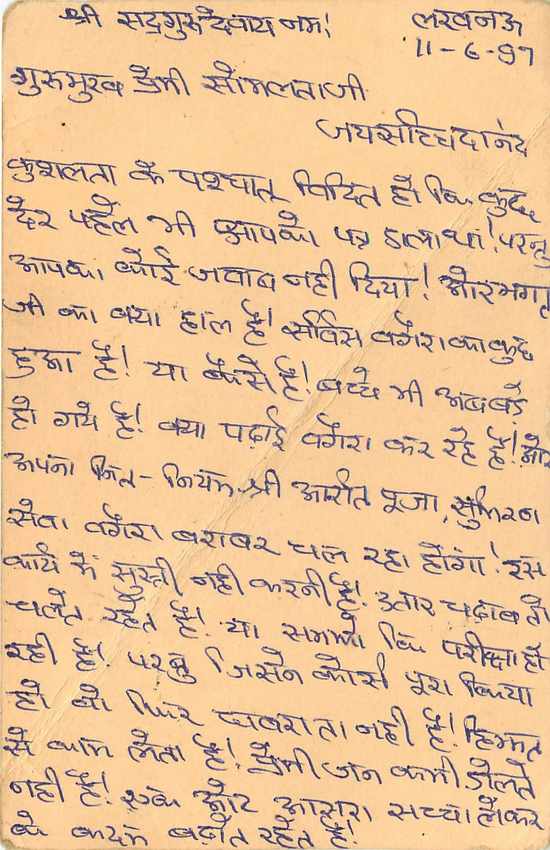 श्री सद्गुरुदेवाय नमः!
लखनऊ
11-6-97
गुरुमुख प्रेमी सोमलताजी
जयसच्चिदानंद
कुशलता के पश्चात् विदित हो कि कुछ
देर पहले भी आपको पत्र डाला था! परन्तु
आपका कोई जवाब नही दिया! और भगत
जी का क्या हाल है! सर्विस वगैरा का कुछ
हुआ है! या कैसे है! बच्चे भी अब बड़े
हो गये है! क्या पढ़ाई वगैरा कर रहे है! और
अपना नित-नियम श्री आरति पूजा, सुमिरन
सेवा वगैरा बराबर चल रहा होगा! इस
कार्य में सुस्ती नही करनी है! उतार चढ़ाव तो
चलते रहते है! या समझो कि परीक्षा हो
रही है! परन्तु जिसने कोर्स पूरा किया
हो वो फिर घबराता नही है! हिम्मत
से काम लेता है! प्रेमी जन कभी डोलते
नही है! एक ओट आसरा सच्चा लेकर
के कदम बढ़ाते रहते है!